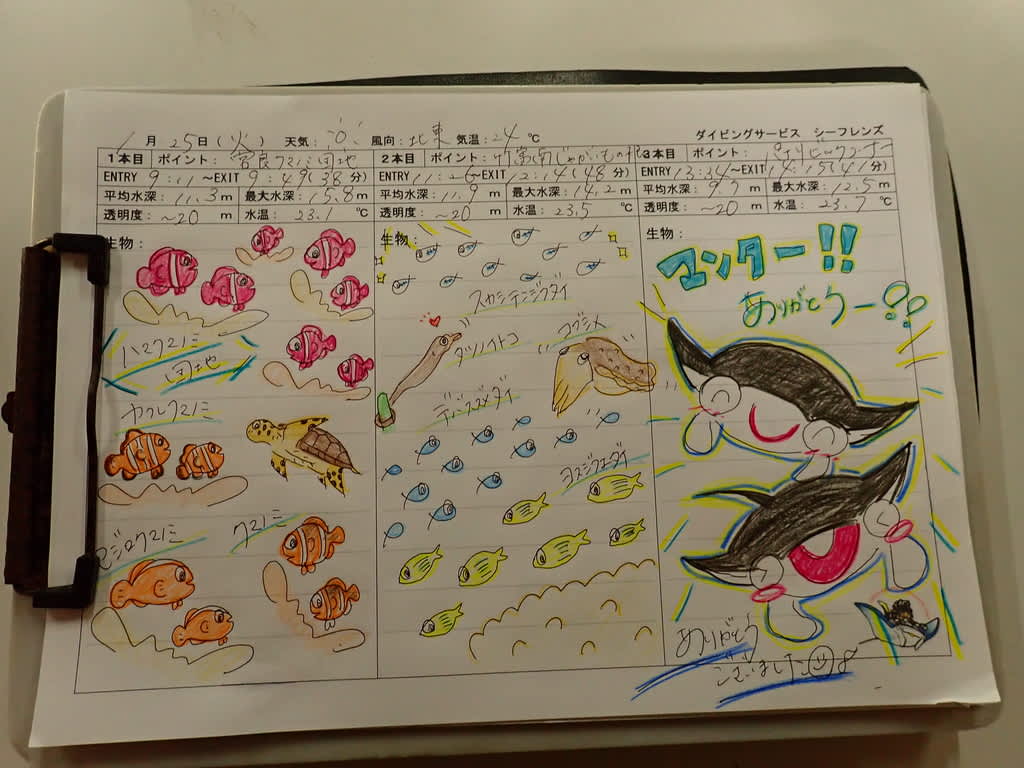 1月25日(火) 天気: 風向: 北東 気温: 24℃ ダイビングサービス シーフレンズ
1本目 ポイント: 宮良クマノミ団地
ENTRY 9:11~EXIT 9:49(38分)
平均水深: 11.3m 最大水深: 15.8m
透明度: ~20m 水温: 23.1℃
生物:
ハマクマノミ
団地
カクレクマノミ
セジロクマノミ
クマノミ
2本目 ポイント: 竹富南じゃがいもの根
ENTRY 11:26~EXIT 12:14(48分)
平均水深: 11.9m 最大水深: 14.2m
透明度: ~20m 水温: 23.5℃
生物:
スカシテンジクダイ
タツノイトコ
コブシメ
デバスズメダイ
ヨスジフエダイ
3本目 ポイント:
ENTRY 13:34~EXIT 14:15(41分)
平均水深: 9.7m 最大水深: 12.5m
透明度: ~20m 水温: 23.7℃
生物:
マンター!!
ありがとうー??
ありがとう
ございました